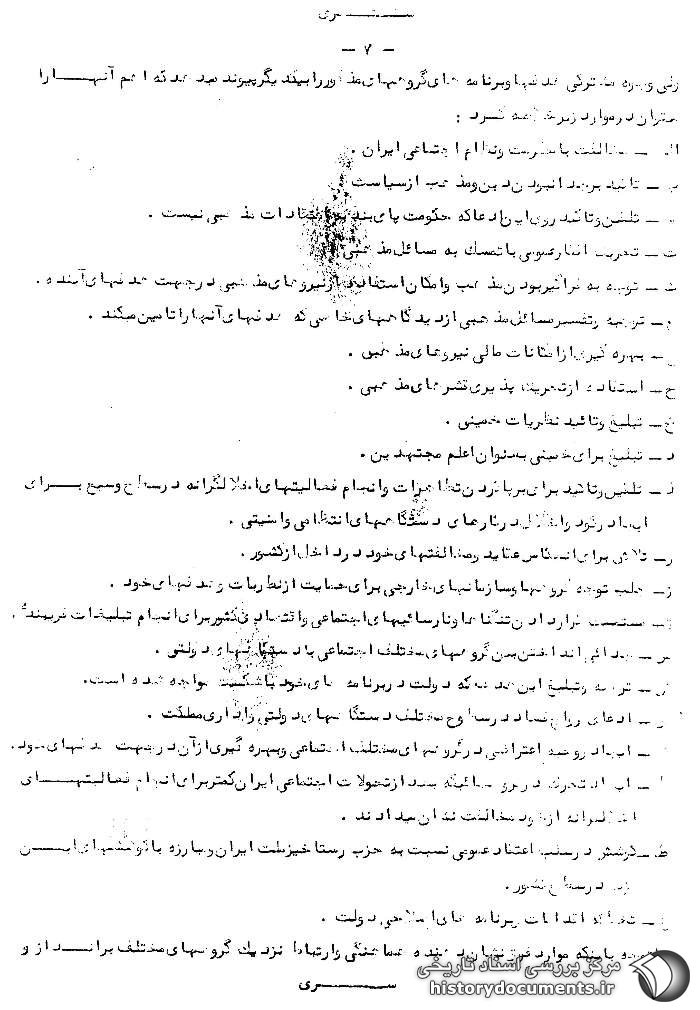 ســـــری
- ۷ -
مشترکی هدفها و برنامه های گروههای را بیکدیگر پیوند میدهد که اهم آنهـــا را
میتوان در موارد زیر خلاصه کرد :
الف - مخالفت با و نظام اجتماعی ایران .
ب - تائید بر جدا نبودن دین و مذهب از سیاست
- تلقین و تائید روی این ادعا که حکومت پای بند به اعتقادات مذهبی نیست .
ت - تحریک افکار عمومی با تمسک به مسائل مذهبی
ث - توجه به فراگیر بودن مذهب و امکان استفاده از نیروهای مذهبی در جهت هدفهای آینده .
ج - توجیه و تفسیر مسائل مذهبی از دیدگاههای خاصی که هدفهای آنها را تامین میکند .
- بهره گیری از امکانات مالی نیروهای مذهبی .
ح - استفاده از تحریک پذیری قشرهای مذهبی .
خ - تبلیغ و تائید نظریات خمینی .
د - تبلیغ برای خمینی بعنوان اعلم مجتهدین .
ذ - تلقین و تائید برای برپا کردن تظاهرات و انجام فعالیتهای اخلالگرانه در سطح وسیع بـــرای
ایجاد رکود و اخلال در کارهای دستگاههای انتظامی و امنیتی .
ر - تلاش برای انعکاس عقاید و مخالفتهای خود در داخل از کشور .
ز - جلب توجه گروهها و سازمانهای خارجی برای حمایت از نظریات و هدفهای خود .
قرار دادن تنگناها و نارسائیهای اجتماعی و اقتصادی کشور برای انجام تبلیغات فریبنده .
س - جدائی انداختن بین گروههای مختلف اجتماعی با دستگاههای دولتی .
ش - و تبلیغ این که دولت در برنامه های خود با شکست مواجه شده است.
- ادعای رواج فساد در سطوح مختلف دستگاههای دولتی و اداری مملکت .
- ایجاد روحیه اعتراض در گروههای مختلف اجتماعی و بهره گیری از آن در جهت هدفهای خود.
- ایجاد تحرک در گروههائیکه بعد از تحولات اجتماعی ایران کمتر برای انجام فعالیتهـــای
اخلالگرانه از خود مخالفت نشان میدادند .
ظ - کوشش در سلب اعتقاد عمومی نسبت به حزب رستاخیز ملت ایران و مبارزه با کوششهای ایـــن
حزب در سطح کشور.
ع - تخطئه اقدامات و برنامه های اصلاحی دولت .
با اینکه موارد فوق نشان دهنده هماهنگی و ارتباط نزدیک گروههای مختلف برانـــداز و
ســـــری
مرکز بررسی اسناد تاریخی
historydocuments.ir